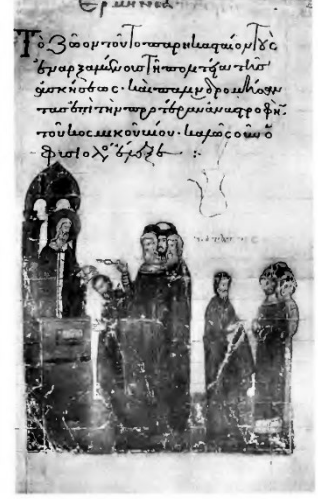 Ερμηνεία
Τὸ ζῶον τοῦτο παρηκασταίον τοὺς
ἐναρξαμένοις τῆ πολιτεία τῆς
ἀσκήσεως· καὶ παλινδρομήσαν
τας ἐπὶ τὴν προτέραν ἀναστροφὴν
τοῦ κοσμικοῦ βίου· καλῶς οὖν ὁ
φισιολόγος ἔλεξε :